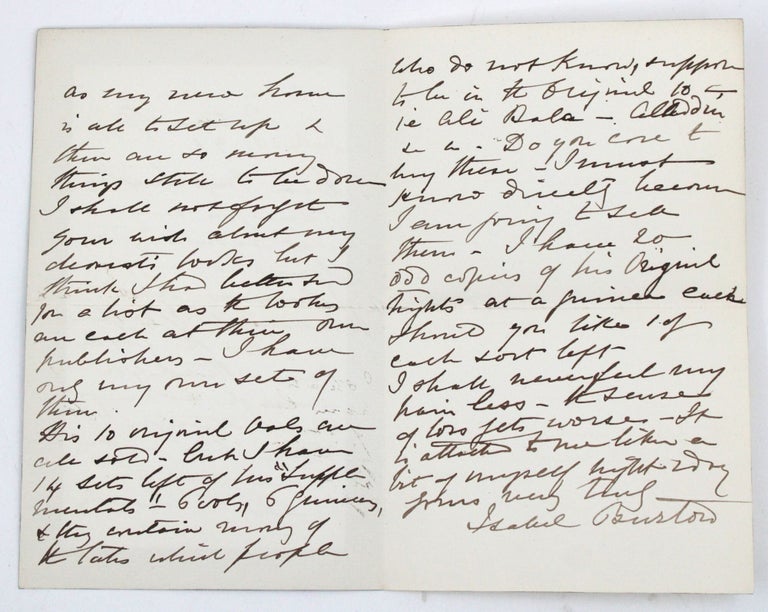 as my new home
is all to set up &
there are so many
things still to be done
I shall not forget
your wish about my
dearest's books but I
think I had better send
for a list as the books
are each at their own
publishers – I have
only my own sets of
them.
His 10 original vols are
all sold – but I have
14 sets left of his "Supple
mentals" – 6 vols, 6 guineas,
& they contain many of
the tales which people
who do not know, suppose
to be in the Original 10 to
ie Ali Baba – Alladdin
&c &c – Do you care to
buy these – I must
know directly because
I am going to sell
them – I have 20
odd copies of his Original
Nights at a guinea each
Should you like 1 of
each sort left
I shall never feel my
pain less – the sense
of loss gets worse – It
is attached to me like a
bit of myself night & day
yours very truly
Isabel Burton